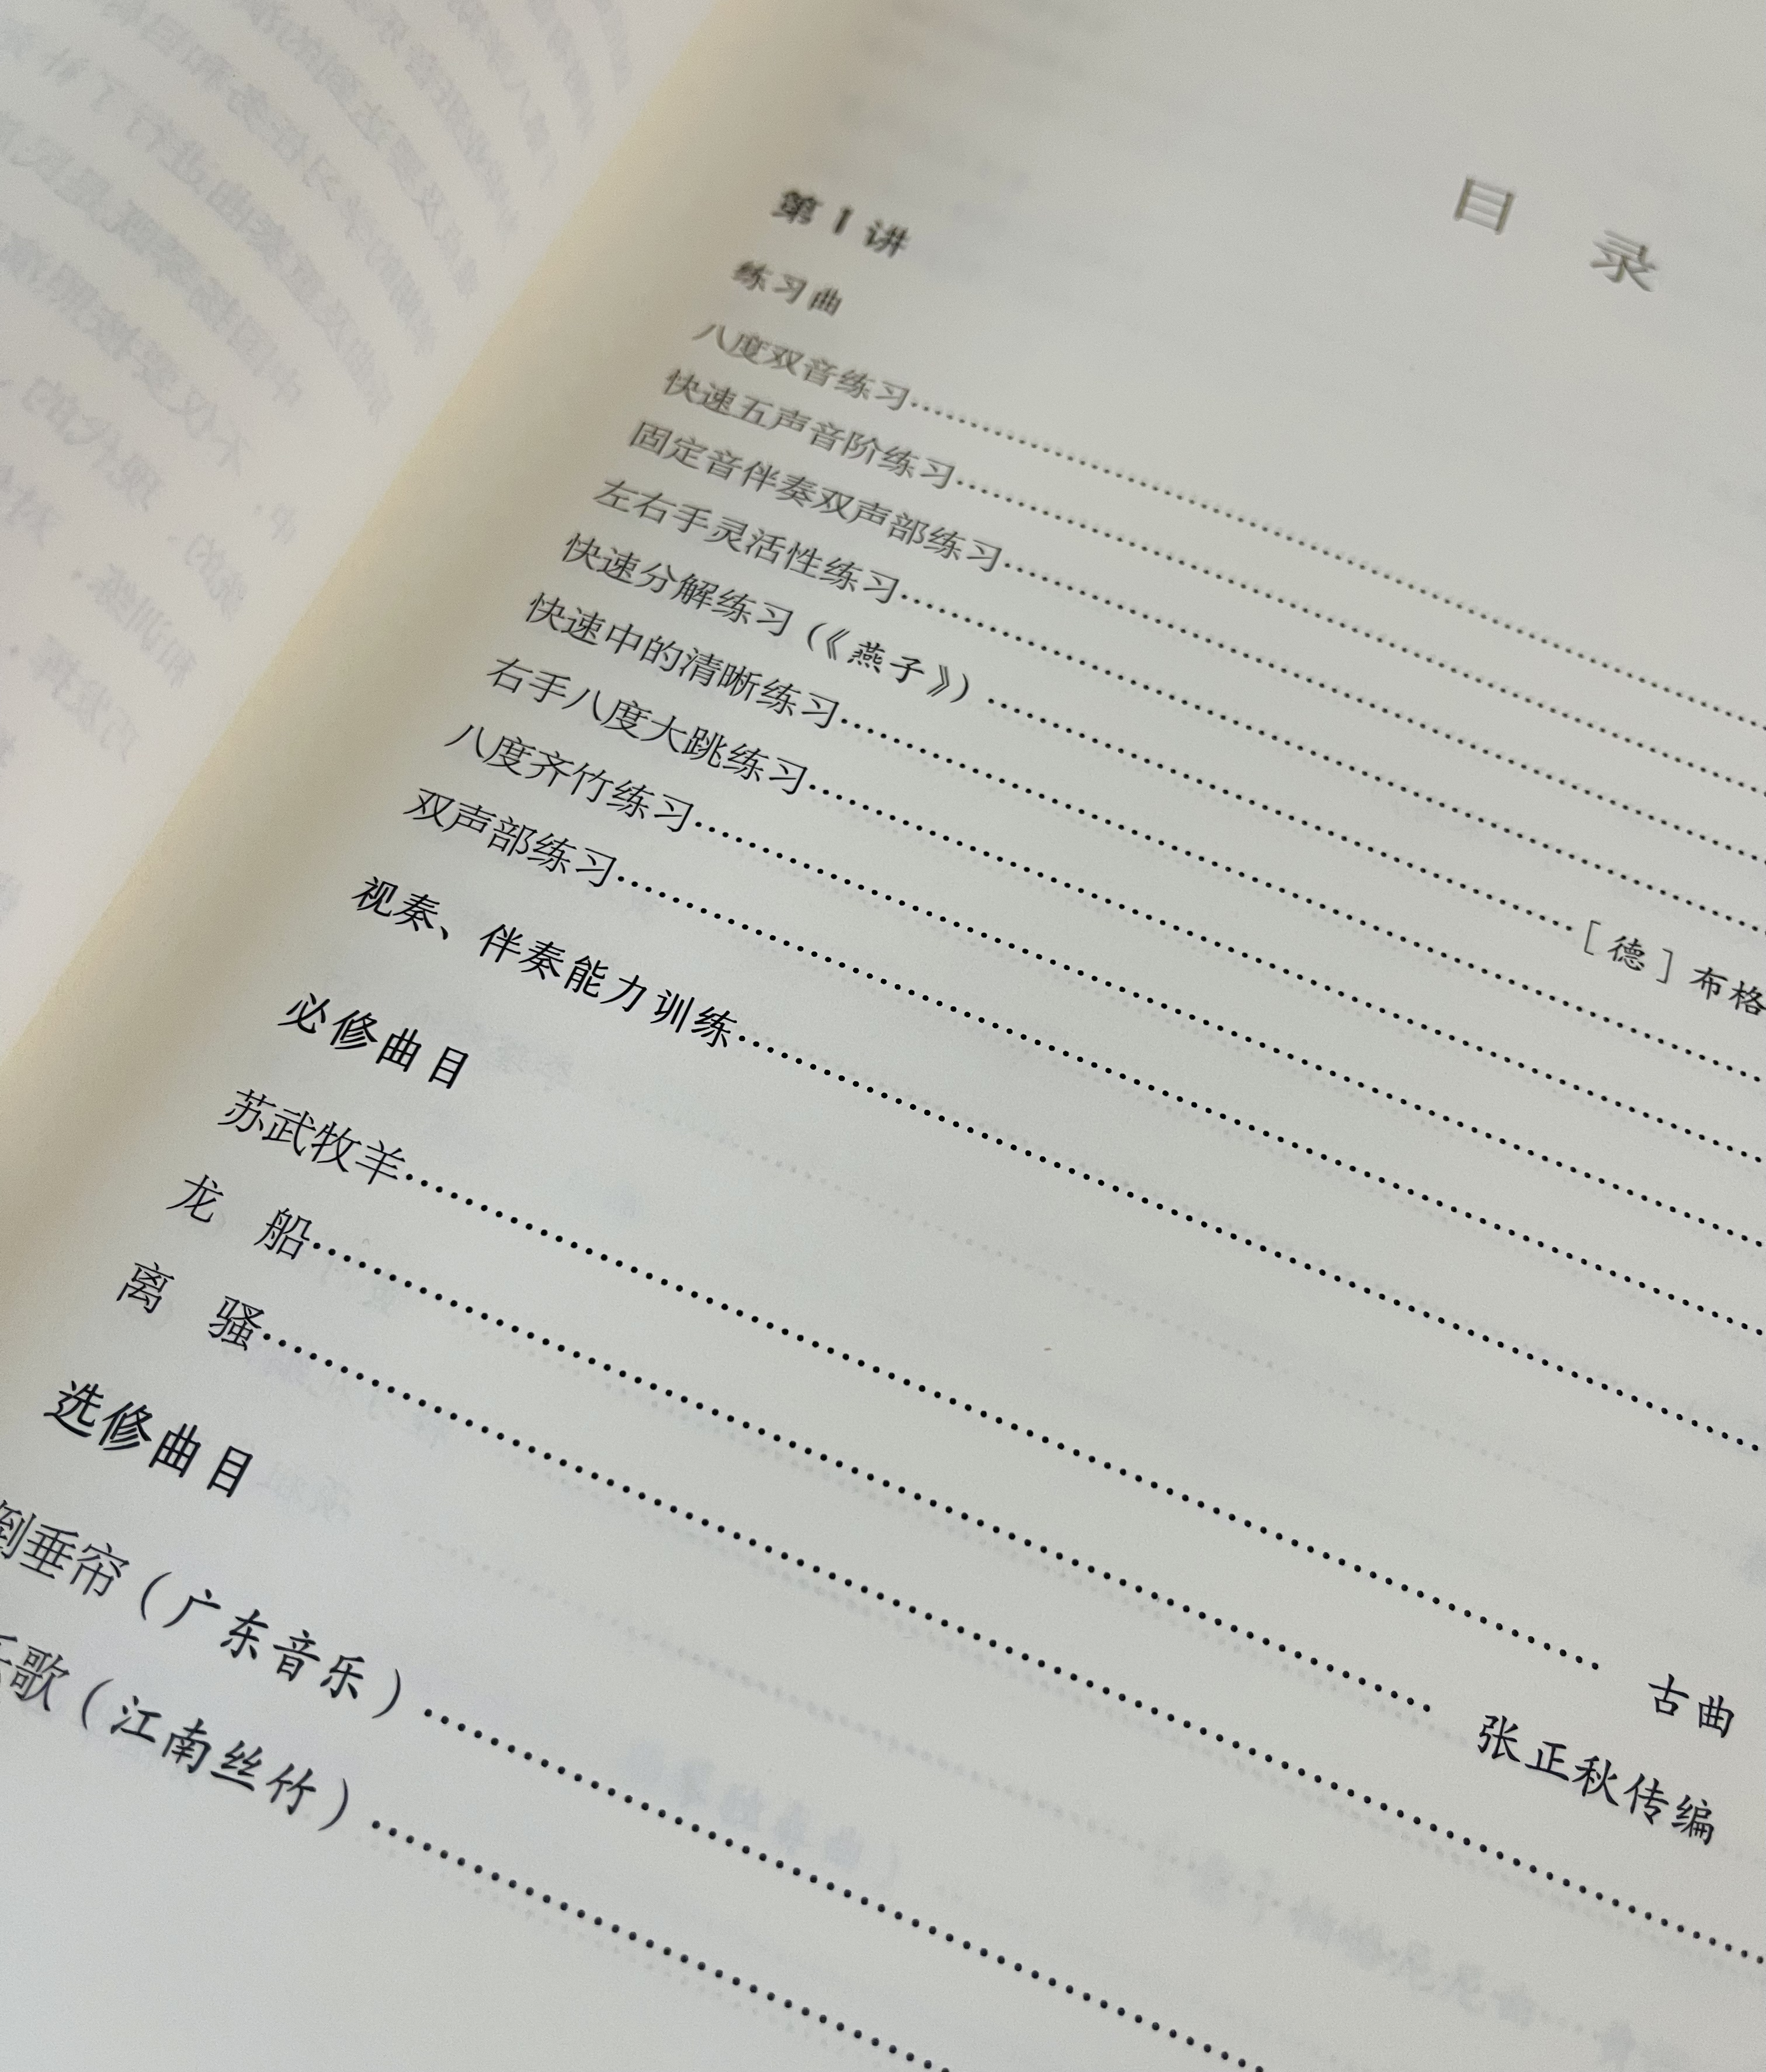 目 录
第 1 讲
练习曲
八度双音练习
快速五声音阶练习
固定音伴奏双声部练习
左右手灵活性练习
快速分解练习（《燕子》） [德]布格
快速中的清晰练习
右手八度大跳练习
八度齐竹练习
双声部练习
视奏、伴奏能力训练
必修曲目
苏武牧羊 古曲
龙 船 张正秋传编
离 骚
选修曲目
倒垂帘（广东音乐）
歌（江南丝竹）